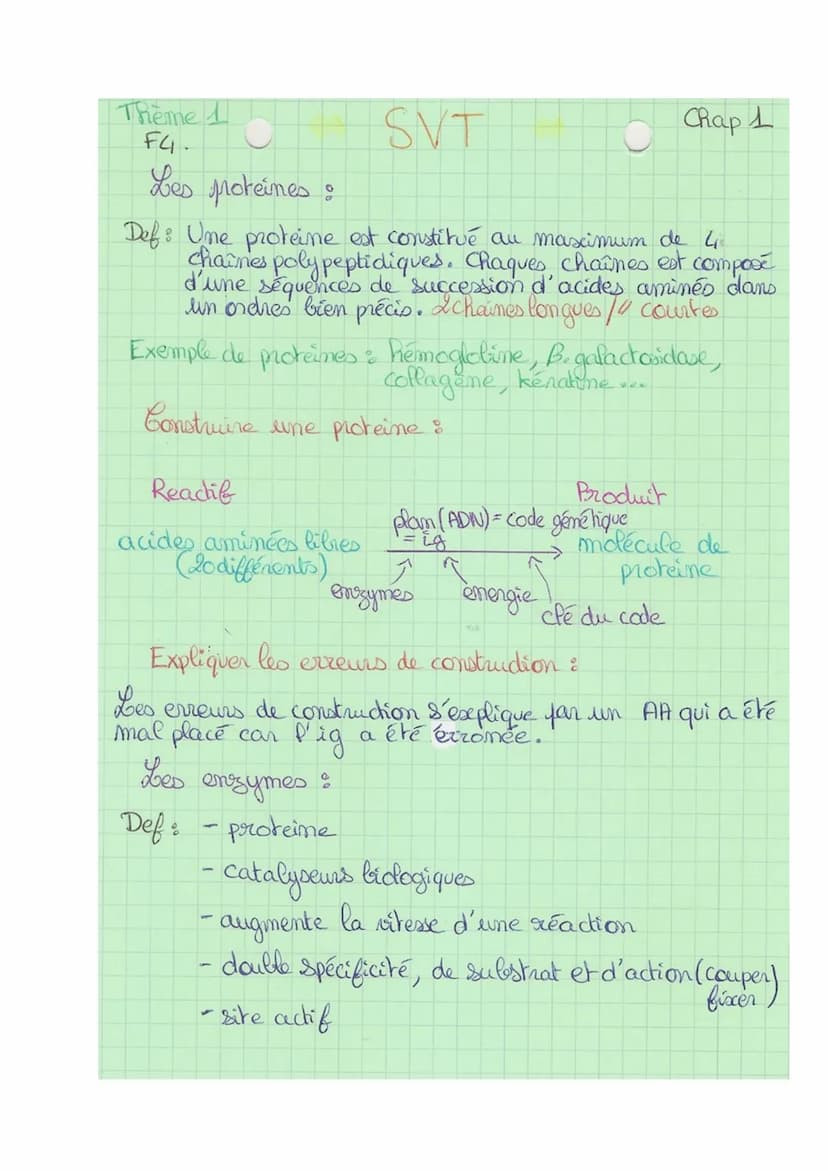 Thème 1 SVT Chap 1
F4.
Les proteines :
Def : Une proteine est constitué au maximum de 4
chaînes polypeptidiques. Chaques chaînes est composé
d'une séquences de succession d'acides aminés dans
un ordres bien précis. 2 chaînes longues / 11 courtes
Exemple de proteines : hémoglobine, B. galactosidase,
collagène, kératine ...
Construire une proteine :
Reactif Produit
plan (ADN) = code génétique
= ig
acides aminées libres molécule de
(20 différents) proteine
enzymes energie clé du code
Expliquer les erreurs de construction :
Les erreurs de construction s'explique par un AA qui a été
mal placé car l'ig a été erronée.
Les enzymes :
Def : - proteine
- catalyseurs biologiques
- augmente la vitesse d'une réaction
- double spécificité, de substrat et d'action (couper)
fixer )
- site actif